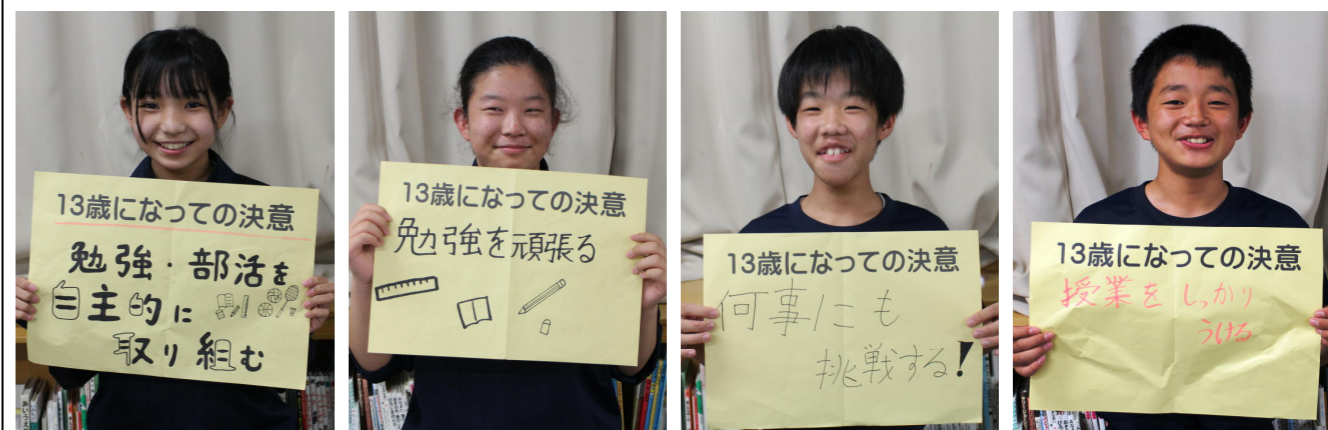 13歳になっての決意
勉強・部活を
自主的に
取り組む
13歳になっての決意
勉強を頑張る
13歳になっての決意
何事にも
挑戦する!
13歳になっての決意
授業をしっかり
うける